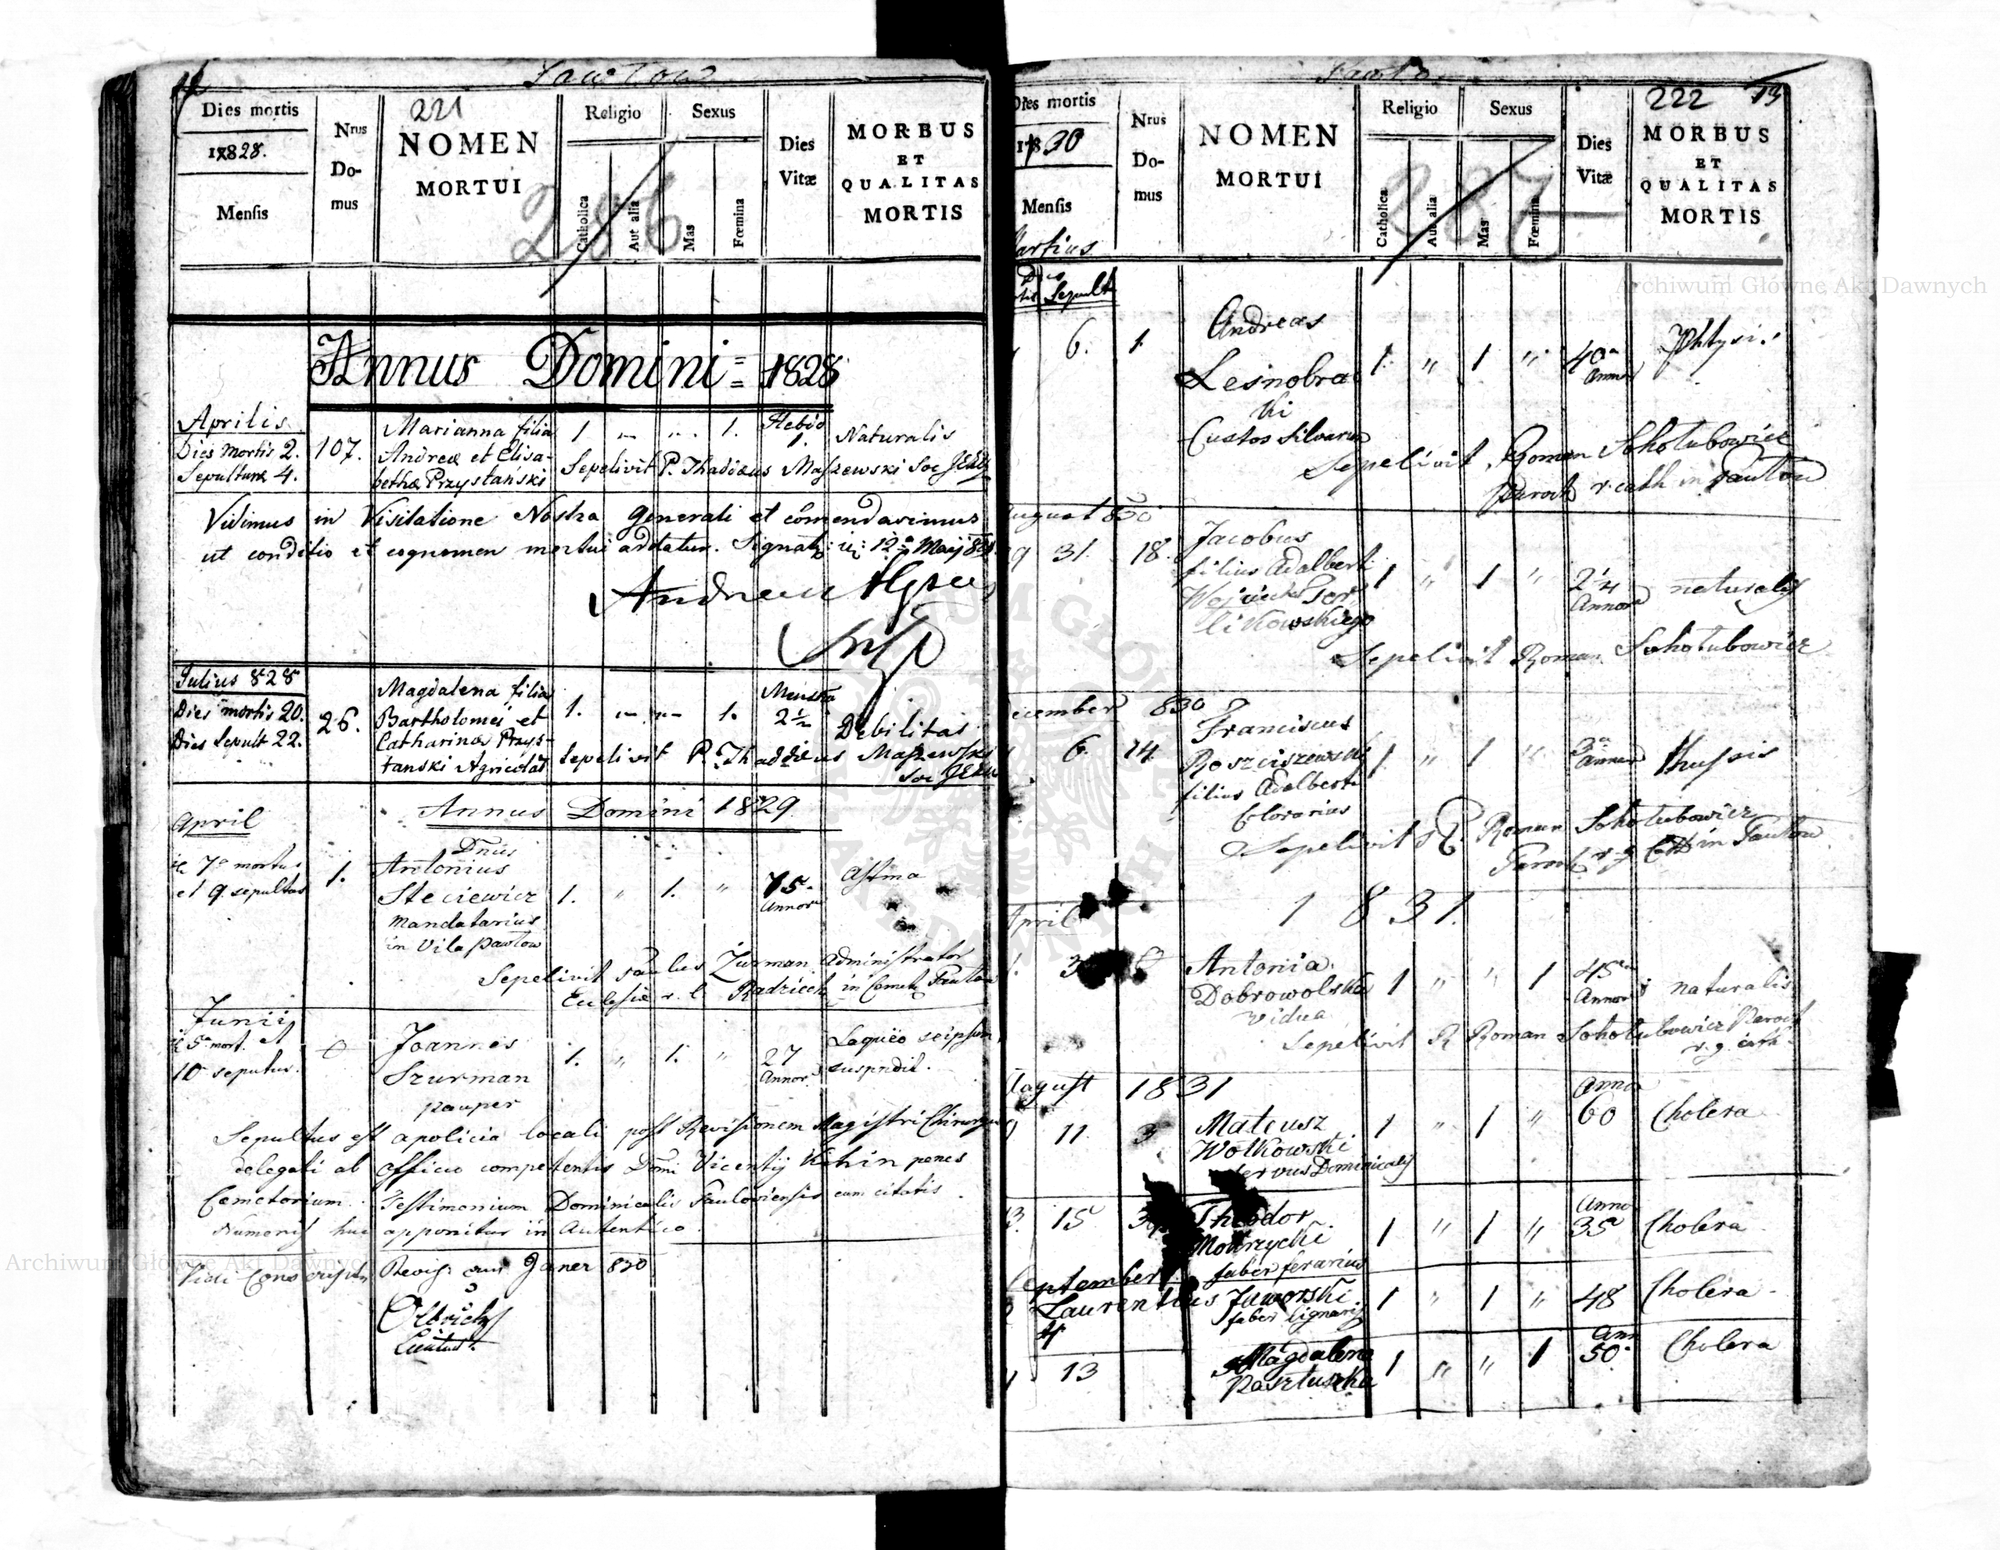 Pawłow
Dies mortis
1828.
Mensis
Nrus
Do-
mus
221
NOMEN
MORTUI
286
Religio
Catholica
Aut alia
Sexus
Mas
Fœmina
Dies
Vitæ
MORBUS
ET
QUALITAS
MORTIS
Annus Domini = 1828
Aprilis
Dies mortis 2.
Sepulturæ 4.
107.
Marianna filia
Andreæ et Elisa-
bethæ Przystański
1 „ „ 1.
1.
Naturalis
Sepelivit P. Thadæus Maszewski Soc JEsu
Vidimus in Visitatione Nostra Generali et comendavimus
ut conditio et cognomen mortui addatur.
Julius 828
Dies mortis 20.
Dies Sepult 22.
26.
Magdalena filia
Bartholomei et
Catharinæ Przys-
tanski Agricolæ
1. „ „ 1.
2½
Debilitas
Sepelivit P. Thaddæus Maszewski
Soc JEsu
Annus Domini 1829
April
7a mortus
et 9 sepultus
1.
Dnus
Antonius
Steciewicz
Mandatarius
in Vila Pawłow
1. „ 1. „
75.
Annor
Astma
Sepelivit Paulus Zurman Administrator
Eclesiæ r. l. Radziech in Cemet Pawłow
Junii
5a mort. et
10 seputus.
0
Joannes
Szurman
pauper
1. „ 1. „
27
Annor
Laqueo seipsum
suspendit.
Sepultus est a policia locali post Revisionem Magistri Chirurgiæ
delegati ab officio competentis Domi Vicentij Kehin penes
Cæmetorium. Testimonium Dominicalis Pawloviensis cum citatis
Numeris huc apponitur in Autentico.
Vidi Janer 830
Pawło
Dies mortis
1830
Mensis
Martius
Sepult
Nrus
Do-
mus
NOMEN
MORTUI
Religio
Catholica
Aut alia
287
Sexus
Mas
Fœmina
Dies
Vitæ
222
13
MORBUS
ET
QUALITAS
MORTIS
6. 1.
Andreas
Lesnobrod
ki
Custos Silvarum
1. „ 1 „
40
Annor
Phtysis
Sepelivit Roman Sokołubowicz
Paroch r. cath in Pawłow
August 830
31. 18.
Jacobus
filius Adalberti
1 „ 1 „
2¼
Annor
naturalis
Sepelivit Roman Sokołubowicz
December 830
6. 14
Franciscus
Roszciszewski
filius Adalberti
1 „ 1 „
3
Annor
thussis
Sepelivit R. Roman Sokołubowicz
Paroch r. g. Cath in Pawłow
1831.
April
Antonia
Dobrowolska
vidua
1 „ „ 1
45
Annor
naturalis
Sepelivit R Roman Sokołubowicz Paroch
r. g. cath
August 1831
11. 3
Mateusz
Wołkowski
servus Dominicalis
1 „ 1 „
Anno
60
Cholera
13. 15
Theodor
Mokrzycki
faber ferarius
1 „ 1 „
Anno
35
Cholera
September
Laurentius Jaworski
faber lignaris
1 „ 1 „
48
Cholera
13
Magdalena
Pasztuszka
1 „ „ 1
Ann
50.
Cholera
Archiwum Główne Akt Dawnych
Archiwum Główne Akt Dawnych